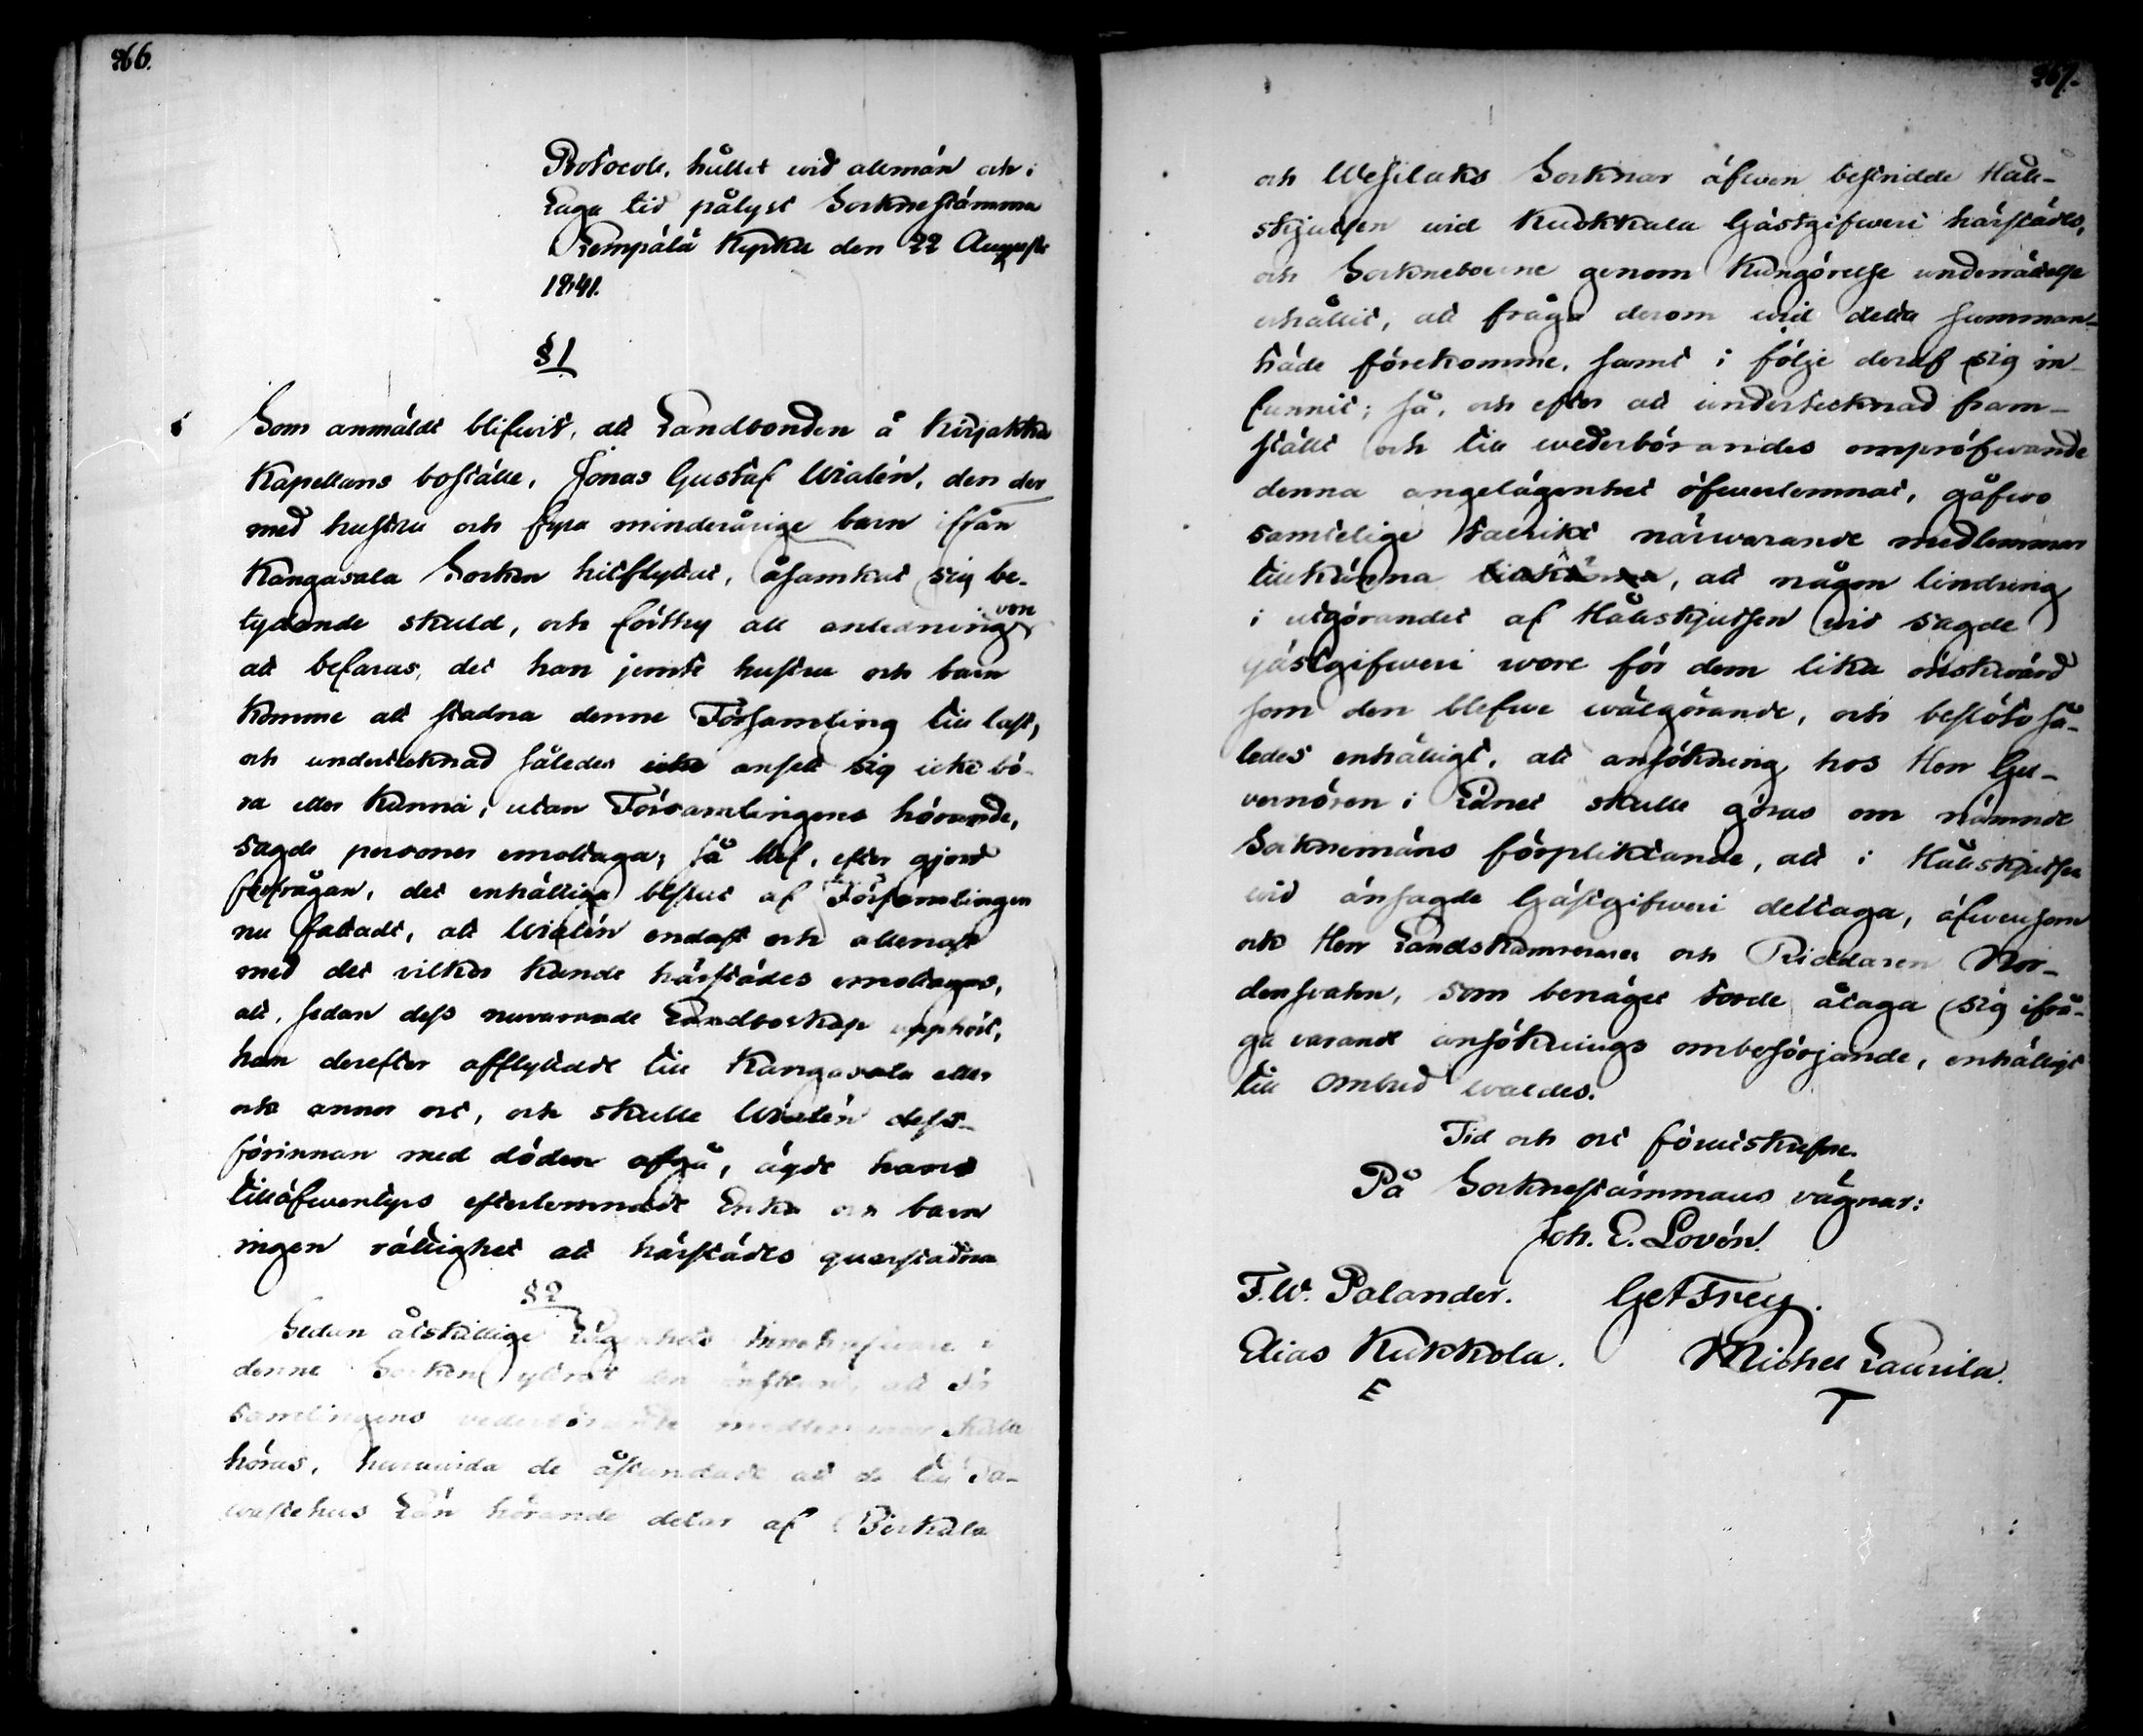 266.
Protocoll, hållet wid allmän och i
Laga tid pålyst Socknestämma
i Lempälä Kyrka den 22 Augusti
1841.
§ 1
Som anmäldt blifwit, att Landbonden å Kirjakka
Kapellans boställe, Jonas Gustaf Widlén, den der
med hustru och fyra minderårige barn ifrån
Kangasala Socken hitflyttat, åsamkat sig be-
tydande skuld, och förthy all anledning vore
att befaras, det han jemte hustru och barn
komme att stadna denne Församling till last,
och undertecknad således icke ansett sig icke bö-
ra eller kunna, utan Församlingens hörande,
sagde personer emottaga; så blef, efter gjord
förfrågan, det enhälliga beslut af Församlingen
nu fattadt, att Widlén endast och allenast
med det vilkor kunde härstädes emottagas,
att, sedan dess nuvarande Landboskap upphört,
han derefter afflyttade till Kangasala eller
ock annor ort, och skulle Widlén dess-
förinnan med döden afgå, ägde hans
tilläfwentyrs efterlemnade Enka och barn
ingen rättighet att härstädes quarstadna
§ 2
Sedan åtskillige Lägenhets Innehafware i
denne Socken yttrat den önskan, att För
samlingens vederbörande medlemmar skulle
höras, huruvida de åstundade att de till Ta-
wastehus Län hörande delar af Birkala
267.
och Wesilaks Socknar äfwen bestridde Håll-
skjutsen wid Kuokkala Gästgifweri härstädes,
och Sockneboerne genom Kungörelse underrättelse
erhållit, att fråga derom wid detta samman-
träde förekomme, samt i följe deraf sig in-
funnit; så, och efter att undertecknad fram-
ställt och till wederbörandes ompröfwande
denna angelägenhet öfwerlemnat, gåfwo
samtelige talrikt närwarande medlemmar
tillkänna, att någon lindring
i utgörandet af Hållskjutsen wid sagde
Gästgifweri wore för dem lika önskwärd
som den blefwe wälgörande, och beslöts så-
ledes enhälligt, att ansökning hos Herr Gu-
vernören i Länet skulle göras om nämnde
Socknemäns förpliktande, att i Hållskjutsen
wid ansagde Gästgifweri deltaga, äfwensom
ock Herr Landskamreraren och Riddaren Nor-
denswahn, som benäget torde åtaga sig ifrå-
ga varande ansöknings ombesörjande, enhälligt
till Ombud waldes.
Tid och ort förutskrefne.
På Socknestämmans vägnar:
Joh. E. Lovén.
F.W. Palander. G A Frey.
Elias Kukkola. Michel Laurila.
E T